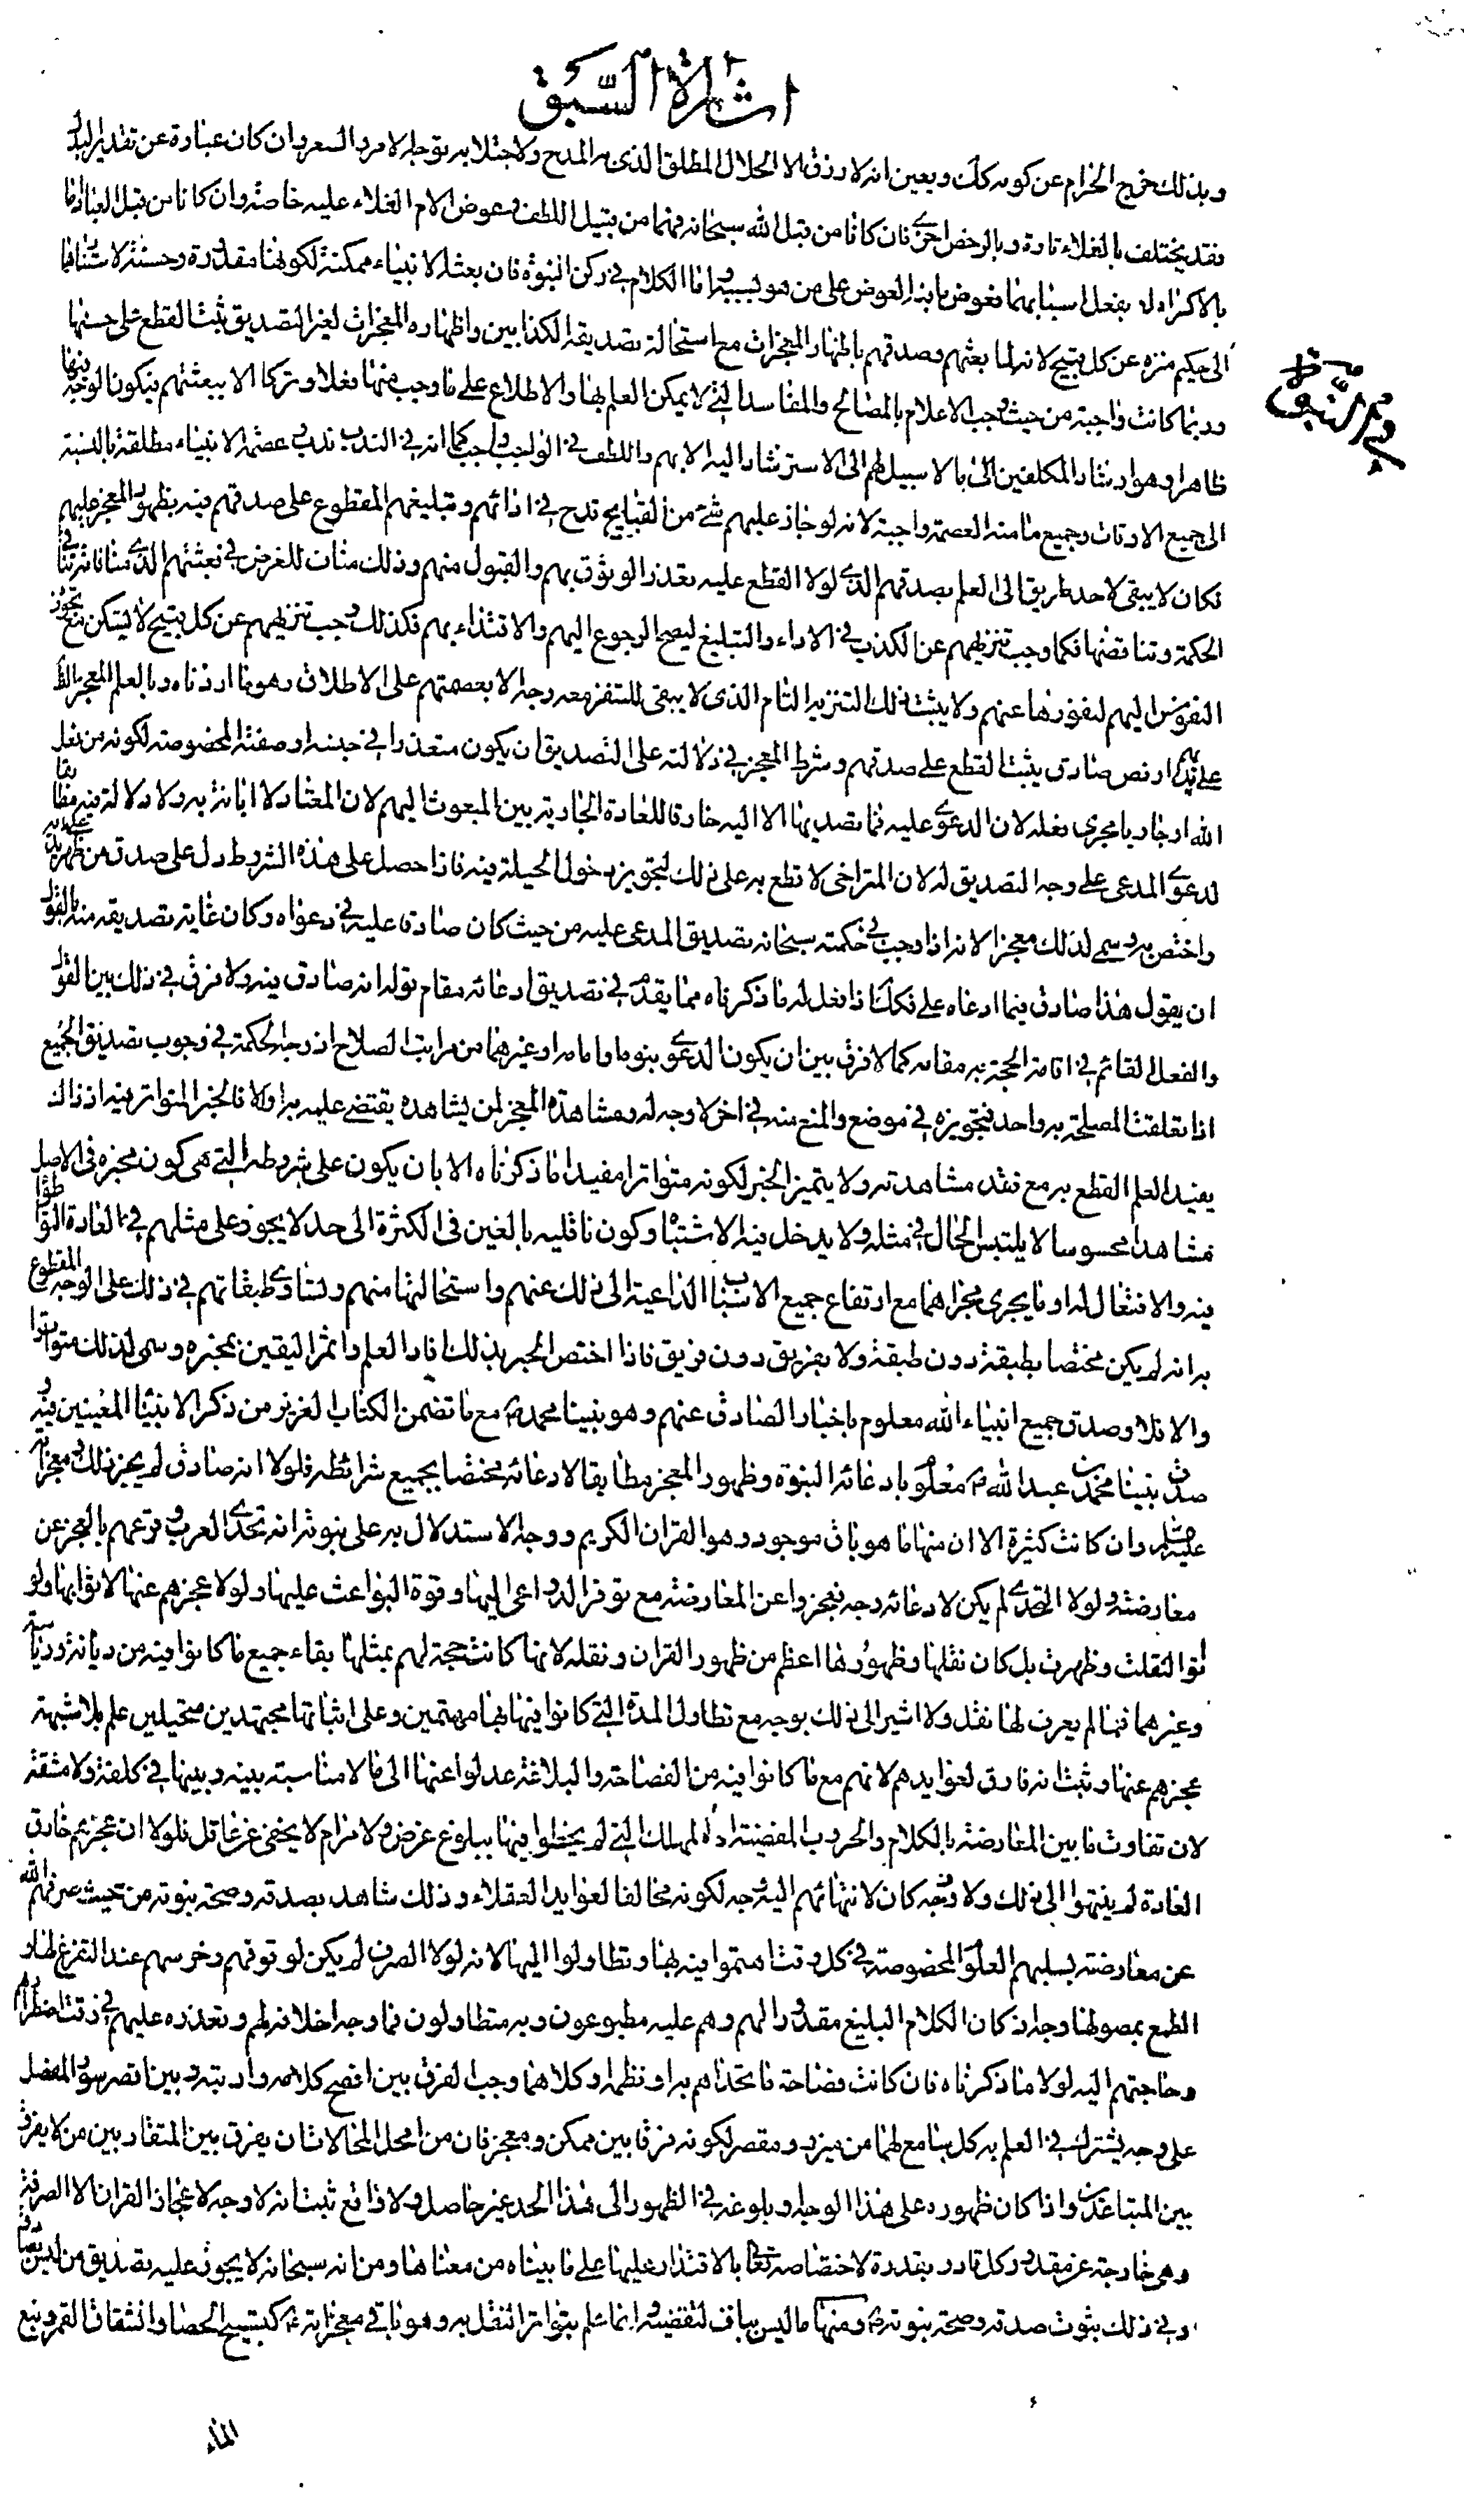 اشارة السبق
وبذلك خرج الحرام عن كونه كك ويعين انه لا رزق الا الحلال المطلق الذى به المدح ولاجتلابه توجه الامر والسعر وان كان عبارة عن تقدير البدل
فقد يختلف بالغلاء تارة وبالرخص اخرى فان كانا من قبل الله سبحانه فهما من قبيل اللطف وعوض الام الغلاء عليه خاصة وان كانا من قبل العباد اما
بالاكراه او بفعل اسبابهما فعوض ما فيه العوض على من هو بسببه واما الكلام في ركن النبوة فان بعثة الانبياء ممكنة لكونها مقدورة وحسنة لاستنادها
الى حكيم منزه عن كل قبيح لانه لما بعثهم وصدقهم باظهار المعجزات مع استحالة تصديقه الكذابين واظهاره المعجزات لغير التصديق ثبت القطع على حسنها
وربما كانت واجبة من حيث وجب الاعلام بالمصالح والمفاسد التي لا يمكن العلم بها والاطلاع على ما وجب منها فعلا وتركا الا ببعثتهم فيكون الوجه فيها
ظاهرا وهو ارشاد المكلفين الى ما لا سبيل لهم الى الاسترشاد اليه الا بهم واللطف في الواجب واجب كما انه في الندب ندب وعصمة الانبياء مطلقة بالنسبة
الى جميع الاوقات وجميع ما منه العصمة واجبة لانه لو جاز عليهم شئ من القبايح قدح في ادائهم وتبليغهم المقطوع على صدقهم فيه بظهور المعجز عليهم
فكان لا يبقى لاحد طريق الى العلم بصدقهم الذي لولا القطع عليه تعذر الوثوق بهم والقبول منهم وذلك مناف للغرض في بعثتهم الذي منافاته تنافي
الحكمة وتناقضها فكما وجب تنزيههم عن الكذب في الاداء والتبليغ ليصح الرجوع اليهم والاقتداء بهم فكذلك وجب تنزيههم عن كل قبيح لا تسكن مع تجويزه
النفوس اليهم لنفورها عنهم ولا يثبت ذلك التنزيه التام الذى لا يبقى للتنفر معه وجه الا بعصمتهم على الاطلاق وهو ما اردناه وبالعلم المعجز الظاهر
على يدهم او نص صادق يثبت القطع على صدقهم وشرط المعجز في دلالته على التصديق ان يكون متعذرا في جنسه او صفته المخصوصة لكونه من فعل
الله او جاريا مجرى فعله لان الدعوى عليه فما تصديقها الا اليه خارقا للعادة الجارية بين المبعوث اليهم لان المعتاد لا ابانة به ولا دلالة فيه مطابقا
لدعوى المدعى على وجه التصديق له لان المتراخى لا قطع به على ذلك لتجويز دخول الحيلة فيه فاذا حصل على هذه الشروط دل على صدق من ظهر على يديه
واختص به وسمى لذلك معجزا لانه اذا وجب في حكمته سبحانه تصديق المدعى عليه من حيث كان صادقا عليه في دعواه وكان غاية تصديقه منه بالقول
ان يقول هذا صادق فيما ادعاه على فكك اذا فعل له ما ذكرناه مما يقدم في تصديق ادعائه مقام قوله انه صادق فيه ولا فرق في ذلك بين القول
والفعل القائم في اقامة الحجة به مقامه كما لا فرق بين ان يكون الدعوى بنوة او امامة او غيرهما من مراتب الصلاح اذ وجه الحكمة في وجوب تصديق الجميع
اذا تعلقت المصلحة به واحد فتجويزه في موضع والمنع منه في اخر لا وجه له ومشاهدة المعجز لمن يشاهده يقتضي علمه به اولا فالخبر المتواتر فيه اذ ذاك
يفيد العلم القطع به مع فقد مشاهدته ولا يتميز الخبر لكونه متواترا مفيدا ما ذكرناه الا بان يكون على شروطه التى هى كون مخبره فى الاصل
مشاهدا محسوسا لا يلتبس الحال في مثله ولا يدخل فيه الاشتباه وكون ناقليه بالغين فى الكثرة الى حد لا يجوز على مثلهم في العادة التواطؤ
فيه والافتعال له او ما يجرى مجراهما مع ارتفاع جميع الاسباب الداعية الى ذلك عنهم واستحالتها منهم وتساوى طبقاتهم في ذلك على الوجه المقطوع
به انه لم يكن مختصا بطبقة دون طبقة ولا بفريق دون فريق فاذا اختص الخبر بذلك افاد العلم واثمر اليقين بمخبره وسمى لذلك متواترا
والا فلا وصدق جميع انبياء الله معلوم باخبار الصادق عنهم وهو نبينا محمد ص مع ما تضمن الكتاب العزيز من ذكر الانبياء المعينين فيه و
صدق نبينا محمد بن عبد الله ص معلوم بادعائه النبوة وظهور المعجز مطابقا لادعائه مختصا بجميع شرائطه فلولا انه صادق لم يجز ذلك ومعجزاته
عليه السلم وان كانت كثيرة الا ان منها ما هو باق موجود وهو القران الكريم ووجه الاستدلال به على نبوته انه تحدى العرب وقرعهم بالعجز عن
معارضته ولولا التحدى لم يكن لادعائه وجه فعجزوا عن المعارضة مع توفر الدواعى اليها وقوة البواعث عليها ولولا عجزهم عنها لاتوا بها ولو
اتوا لنقلت وظهرت بل كان نقلها وظهورها اعظم من ظهور القران ونقله لانها كانت حجة لهم بمثلها بقاء جميع ما كانوا فيه من ديانة ورياسة
وغيرهما فما لم يعرف لها نقل ولا اشير الى ذلك بوجه مع تطاول المدة التي كانوا فيها بها مهتمين وعلى اثباتها مجتهدين متحيلين علم بلا شبهة
عجزهم عنها وثبت انه خارق لعوايدهم لانهم مع ما كانوا فيه من الفصاحة والبلاغة عدلوا عنها الى ما لا مناسبة بينه وبينها في كلفة ولا مشقة
لان تفاوت ما بين المعارضة بالكلام والحروب المفضية الى المهالك التي لم يحظوا فيها ببلوغ غرض ولا مرام لا يخفى عن عاقل فلولا ان عجزهم خارق
العادة لم ينتهوا الى ذلك ولا وجه كان لانتهائهم اليه وجه لكونه مخالفا لعوايد العقلاء وذلك شاهد بصدقه وصحة نبوته من حيث صرفهم الله
عن معارضته بسلبهم العلوم المخصوصة في كل وقت اهتموا فيه بها وتطاولوا اليها لانه لولا الصرف لم يكن لوقوفهم وخرسهم عند التفرغ لها و
الطمع بحصولها وجه اذ كان الكلام البليغ مقدورا لهم وهم عليه مطبوعون وبه متطاولون فما وجه اخلافه لهم وتعذره عليهم في وقت اضطرارهم
وحاجتهم اليه لولا ما ذكرناه فان كانت فصاحة ما تحداهم به او نظمه او كلاهما وجب الفرق بين افصح كلامهم واوتيته وبين اقصر سور المفصل
على وجه يشترك في العلم به كل سامع لهما من مميز ومقصر لكونه فرقا بين ممكن ومعجز فان من امحل المحالات ان يفرق بين المتقاربين من لا يفرق
بين المتباعدين واذا كان ظهوره على هذا الوجه وبلوغه في الظهور الى هذا الحد غير حاصل ولا واقع ثبت انه لا وجه لاعجاز القران الا الصرفة
وهى خارجة عن مقدور كل قادر بقدرة لاختصاصه تعالى بالاقتدار عليها على ما بيناه من معناها ومن انه سبحانه لا يجوز عليه تصديق من ليس بصادق
وفي ذلك ثبوت صدقه وصحة نبوته ص ومنها ما ليس بباق لتقضيه وانما علم بتواتر النقل به وهو باقي معجزاته ع كتسبيح الحصا وانشقاق القمر ونبع
الماء